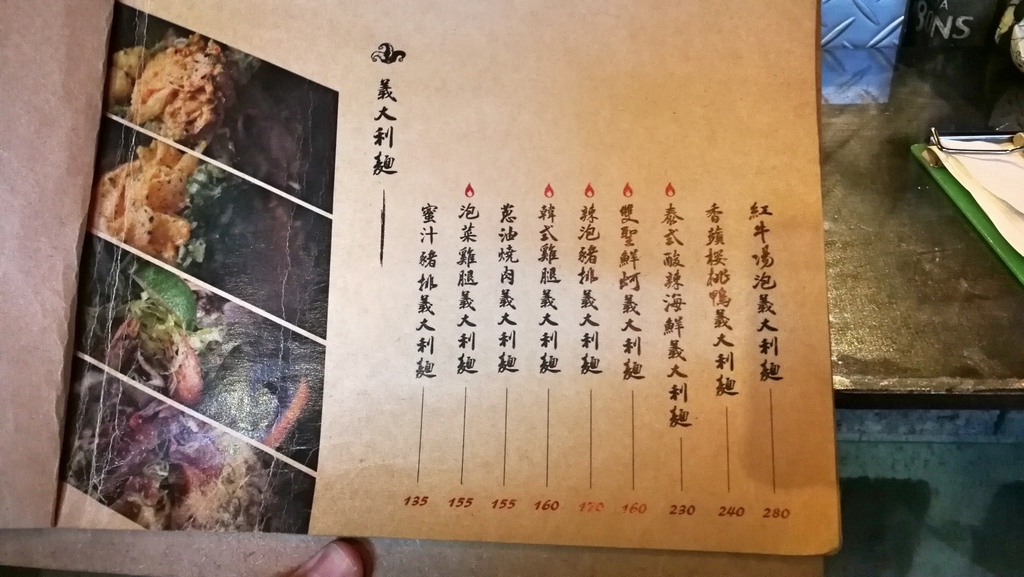 義大利麵
蜜汁豬排義大利麵 135
泡菜雞腿義大利麵 155
蔥油燒肉義大利麵 155
韓式雞腿義大利麵 160
辣泡豬排義大利麵 170
雙聖鮮蚵義大利麵 160
泰式酸辣海鮮義大利麵 230
香蘋櫻桃鴨義大利麵 240
紅牛場泡義大利麵 280
A
NS